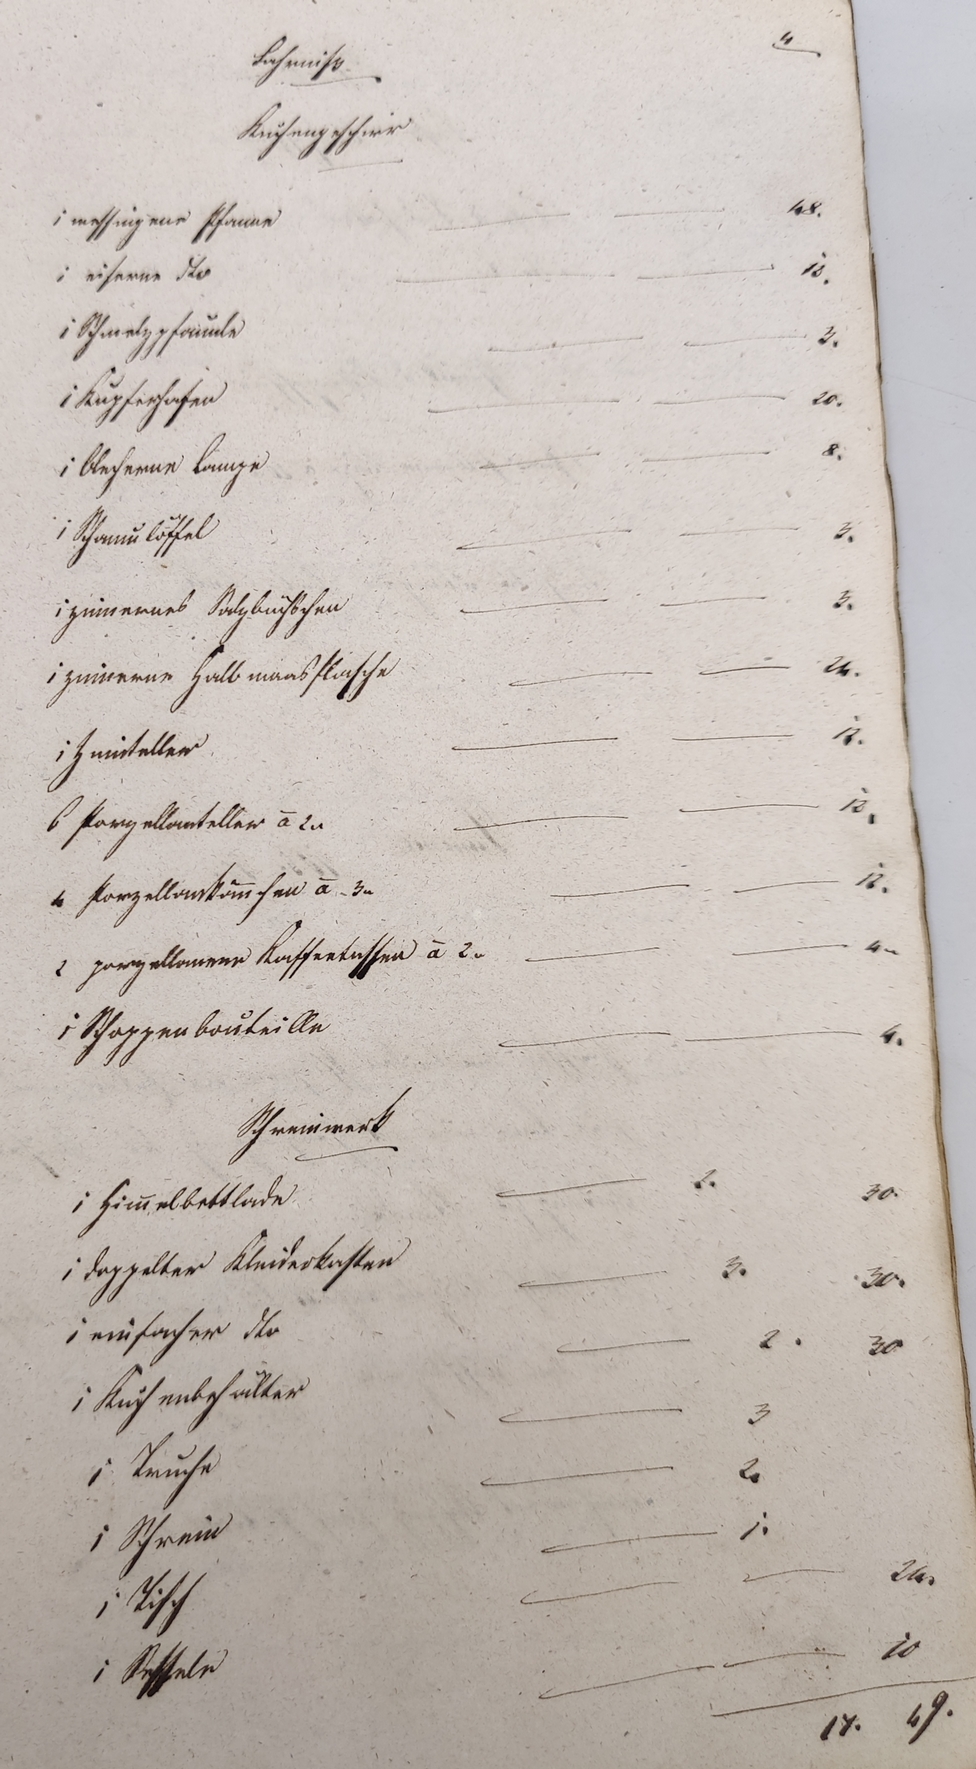 4
Fahrniß
Kuchengeschirr
1 messingene Pfanne — — 48.
1 eiserne dto — — 12.
1 Schmelzpfännle — — 3.
1 Kupferhafen — — 20.
1 blecherne Lampe — — 8.
1 Schaumlöffel — — 3.
1 zinnernes Salzbüchschen — — 3.
1 zinnerne Halbmaasflasche — — 24.
1 Zinnteller — — 12.
6 Porzellanteller à 2. — — 12.
4 Porzellankännchen à 3. — — 12.
2 porzellanene Kaffeetassen à 2. — — 4.
1 Schoppenbouteille — — 4.
Schreinwerk
1 Himmelbettlade — 2. 30.
1 doppelter Kleiderkasten — 3. 30.
1 einfacher dto — 2. 30
1 Kuchenbehälter — 3
1 Truche — 2.
1 Schrein — 1.
1 Tisch — — 24.
1 Sessele — — 10
17. 49.